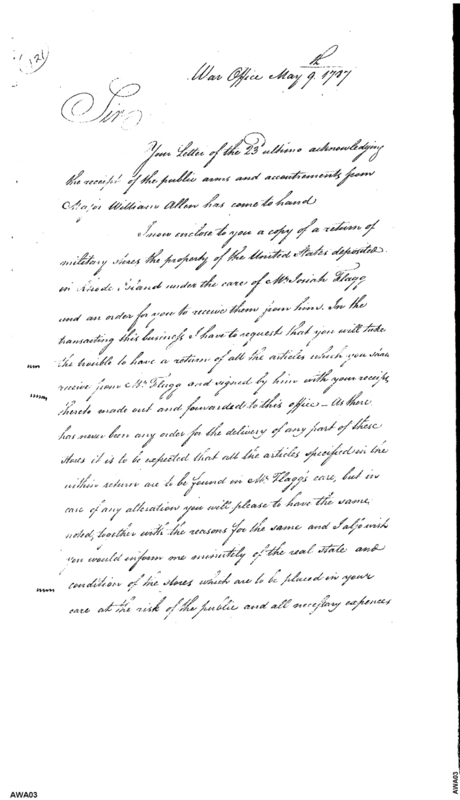 121
War Office May 9th 1787
Sir
Your Letter of the 23d ultimo acknowledging
the receipt of the public arms and accoutrements from
Major William Allen has come to hand
I now enclose to you a copy of a return of
military stores the property of the United States deposited
in Rhode Island under the care of Mr Josiah Flagg
and an order for you to receive them from him. In the
transacting this business I have to request that you will take
the trouble to have a return of all the articles which you shall
receive from Mr Flagg and signed by him with your receipt
thereto made out and forwarded to this office – As there
has never been any order for the delivery of any part of these
stores it is to be expected that all the articles specified in the
within return are to be found in Mr Flaggs care, but in
case of any alteration you will please to have the same,
noted, together with the reasons for the same and I also wish
you would inform me minutely of the real state and
condition of the stores which are to be placed in your
care at the risk of the public and all necessary expences
AWA03
AWA03